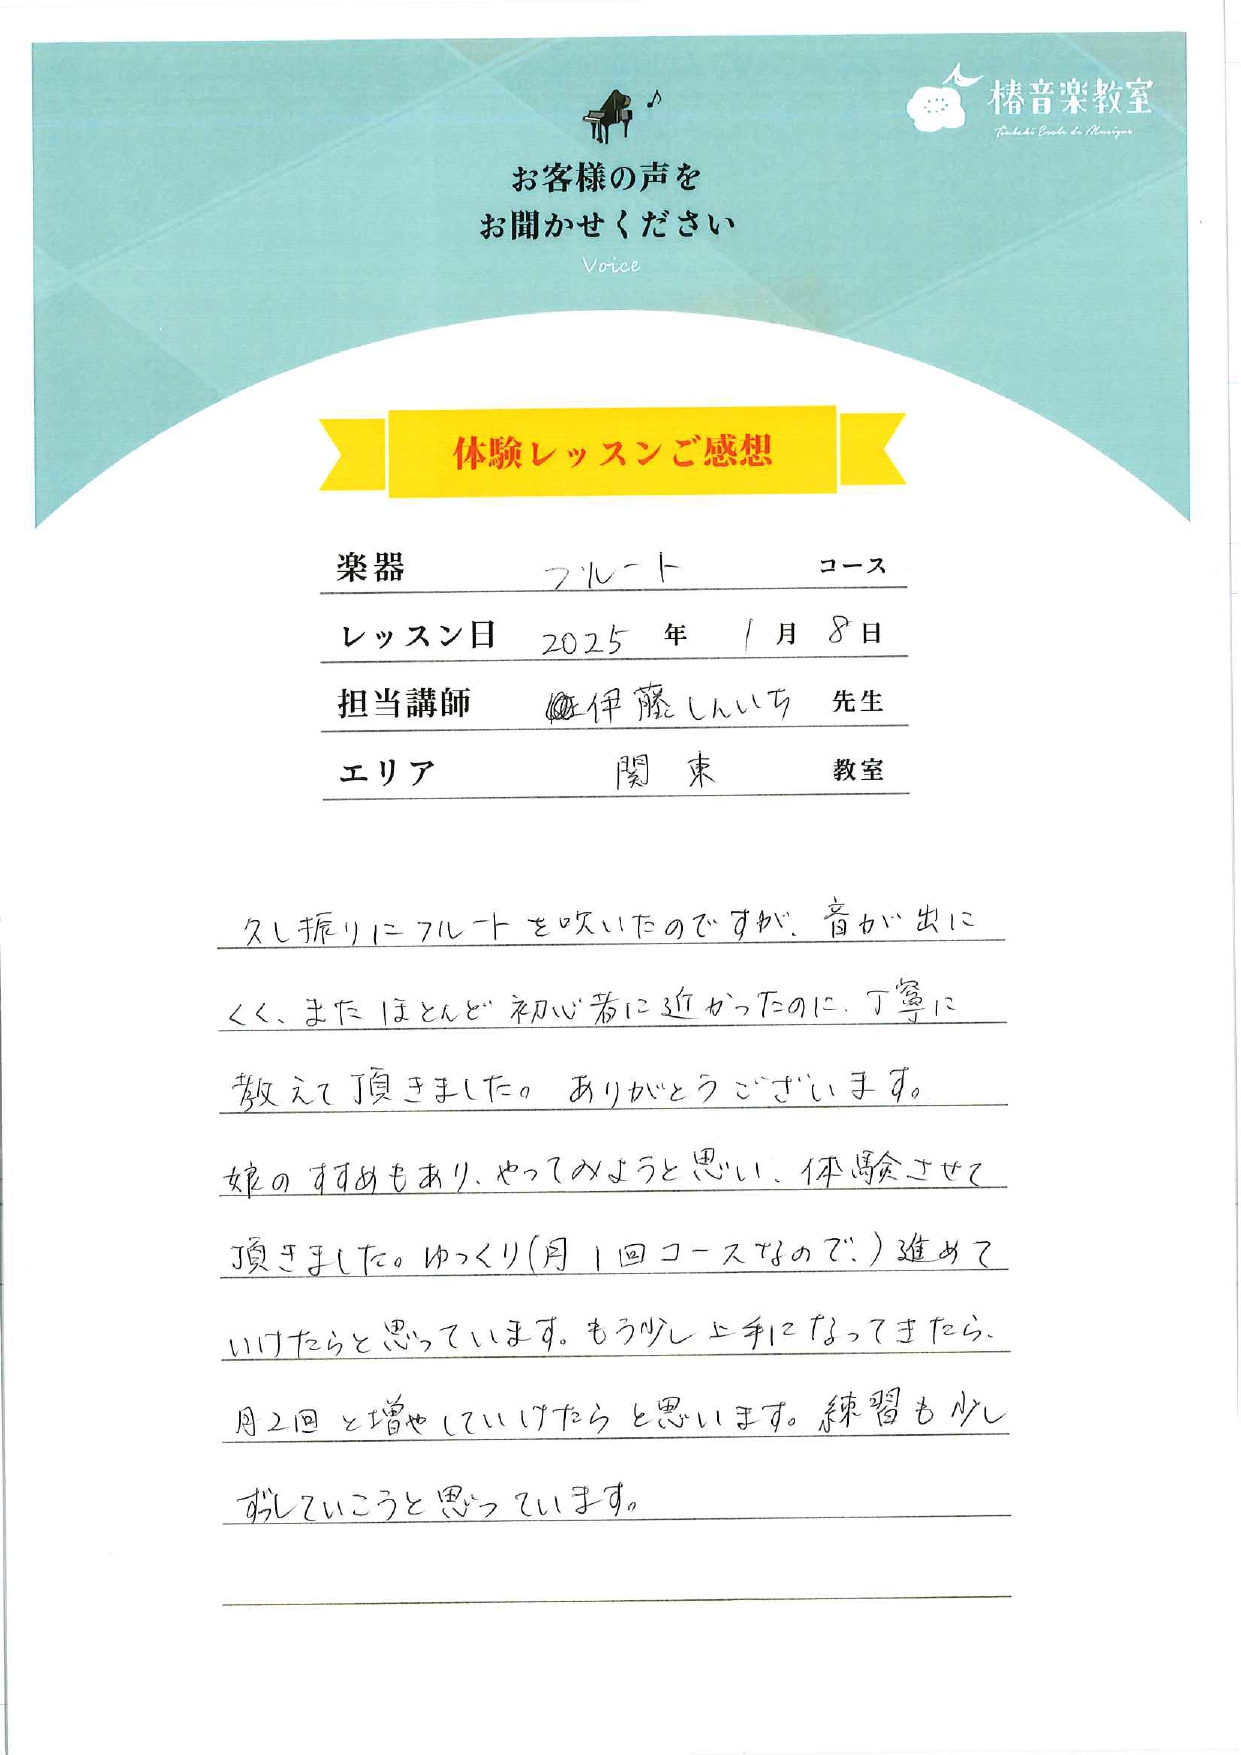 椿音楽教室
Tsubaki Ecole de Musique
お客様の声を
お聞かせください
Voice
体験レッスンご感想
楽器 フルート コース
レッスン日 2025 年 1 月 8 日
担当講師 伊藤しんいち 先生
エリア 関東 教室
久し振りにフルートを吹いたのですが、音が出に
くく、またほとんど初心者に近かったのに、丁寧に
教えて頂きました。ありがとうございます。
娘のすすめもあり、やってみようと思い、体験させて
頂きました。ゆっくり(月1回コースなので、)進めて
いけたらと思っています。もう少し上手になってきたら、
月2回と増やしていけたらと思います。練習も少し
ずつしていこうと思っています。